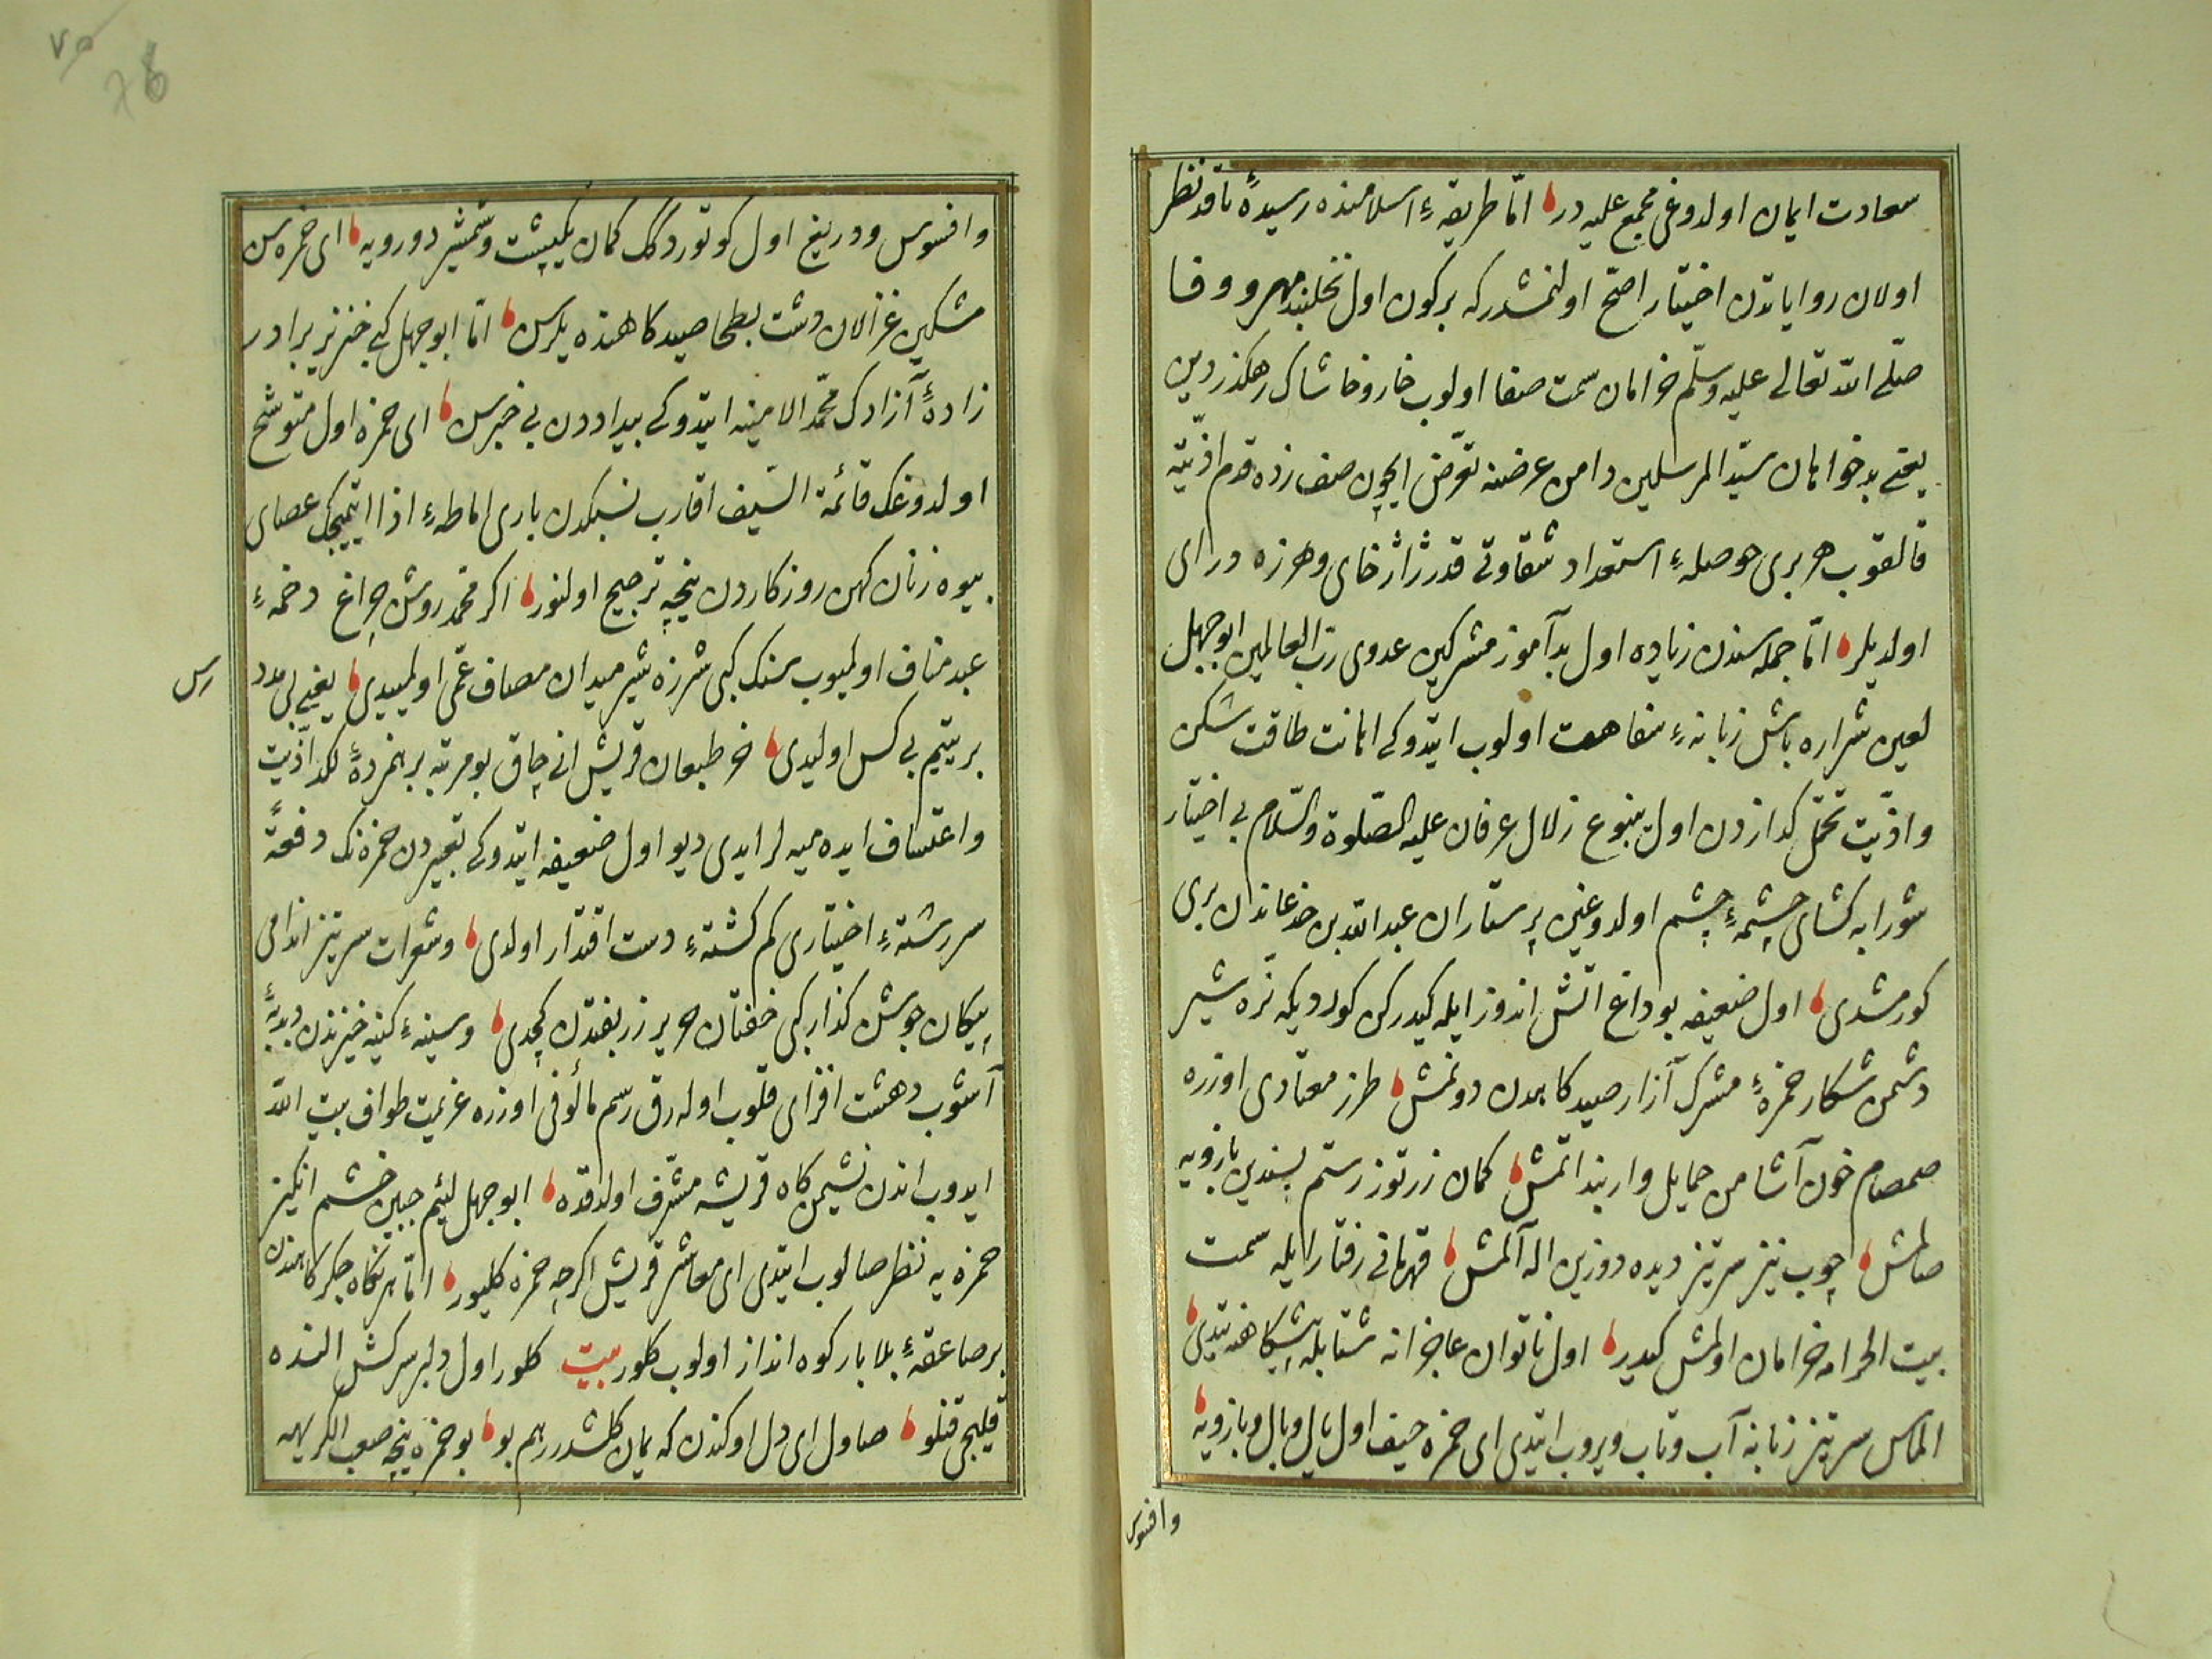 سعادت ایمان اولدوغی مجمع علیه در اما طریقهٔ اسلامنده رسیدهٔ ناقد نظر
اولان روایاتدن اختیار اصح اولنمشدر که بر کون اول نخلبند مهر و وفا
صلّی الله تعالی علیه وسلّم خرامان سمت صفا اولوب خار وخاشاک رهکذر دین
یعنی بدخواهان سیّد المرسلین دامن عرضنه تعرّض ایچون صف زده قدم اذیّته
قالقوب هر بری حوصلهٔ استعداد شقاوتی قدر ژاژخای وهرزه درای
اولدیلر امّا جمله سندن زیاده اول بدآموز مشرکین عدوی ربّ العالمین ابوجهل
لعین شراره باش زبانهٔ سفاهت اولوب ایتدوکی اهانت طاقت شکن
واذیّت تحمّل کدازدن اول ینبوع زلال عرفان علیه الصّلوة والسّلام بی اختیار
شورابه کشای چشمهٔ چشم اولدوغین پرستاران عبدالله بن جدعاندن بری
کورمشدی اول ضعیفه بو داغ آتش اندوز ایله کیدرکن کوردیکه نرّه شیر
دشمن شکار حمزهٔ مشرک آزار صیدکاهدن دونمش طرز معتادی اوزره
صمصام خون آشامن حمایل وار بند اتمش کمان زرتوز رستم پسندین بازویه
صالمش چوب تیز سرتیز دیده دوزین اله آلمش قهرمانی رفتار ایله سمت
بیت الحرامه خرامان اولمش کیدر اول ناتوان عاجزانه شتابله پیشکاهنه یتدی
الماس سرتیز زبانه آب وتاب ویروب ایتدی ای حمزه حیف اول یال وبال وبازویه
وافسوس
وافسوس ودریغ اول کوتوردوکک کمان یکپشت وشمشیر دورویه ای حمزه سن
مشکین غزالان دشت بطحا صیدکاهنده یلرسن امّا ابوجهل کبی خنزیر برادر
زادهٔ آزادک محمّد الامینه ایتدوکی بیداددن بی خبرسن ای حمزه اول متوشح
اولدوغک قائمة السّیف اقارب نسبکدن باری اماطهٔ اذا ایتمیجک عصای
بیوه زنان کهن روزکاردن نیجه ترجیح اولنور اکر محمّد روشن چراغ دخمهٔ
عبد مناف اولمیوب سنک کبی شرزه شیر میدان مصاف عمّی اولمیدی یعنی بی مدد
رس
بر یتیم بی کس اولیدی خر طبعان قریش انی چاق بو مرتبه بر نمردهٔ لکد اذیّت
واعتساف ایده میه لر ایدی دیو اول ضعیفه ایتدوکی تعبیردن حمزه نک دفعةً
سررشتهٔ اختیاری کم کشتهٔ دست اقتدار اولدی وشعرات سرتیز اندامی
پیکان جوشن کذار کبی خفتان حریر زربفتدن کچدی وسینهٔ کینه خیزندن
آشوب دهشت افزای قلوب اوله رق رسم مألوفی اوزره عزیمت طواف بیت الله
ایدوب اندن نشیمن کاه قریشه مشرّف اولدقده ابوجهل لئیم جبین خشم انکیز
حمزه یه نظر صالوب ایتدی ای معاشر قریش اکرچه حمزه کلیور امّا هر نکاه جکر کاهندن
بر صاعقهٔ بلا بار کوه انداز اولوب کلور بیت کلور اول دلبر سرکش النده
قلیجی قتلو صاول ای دل اوکندن که یمان کلشدر رهم بو بو حمزه نیجه صعب الکریهه